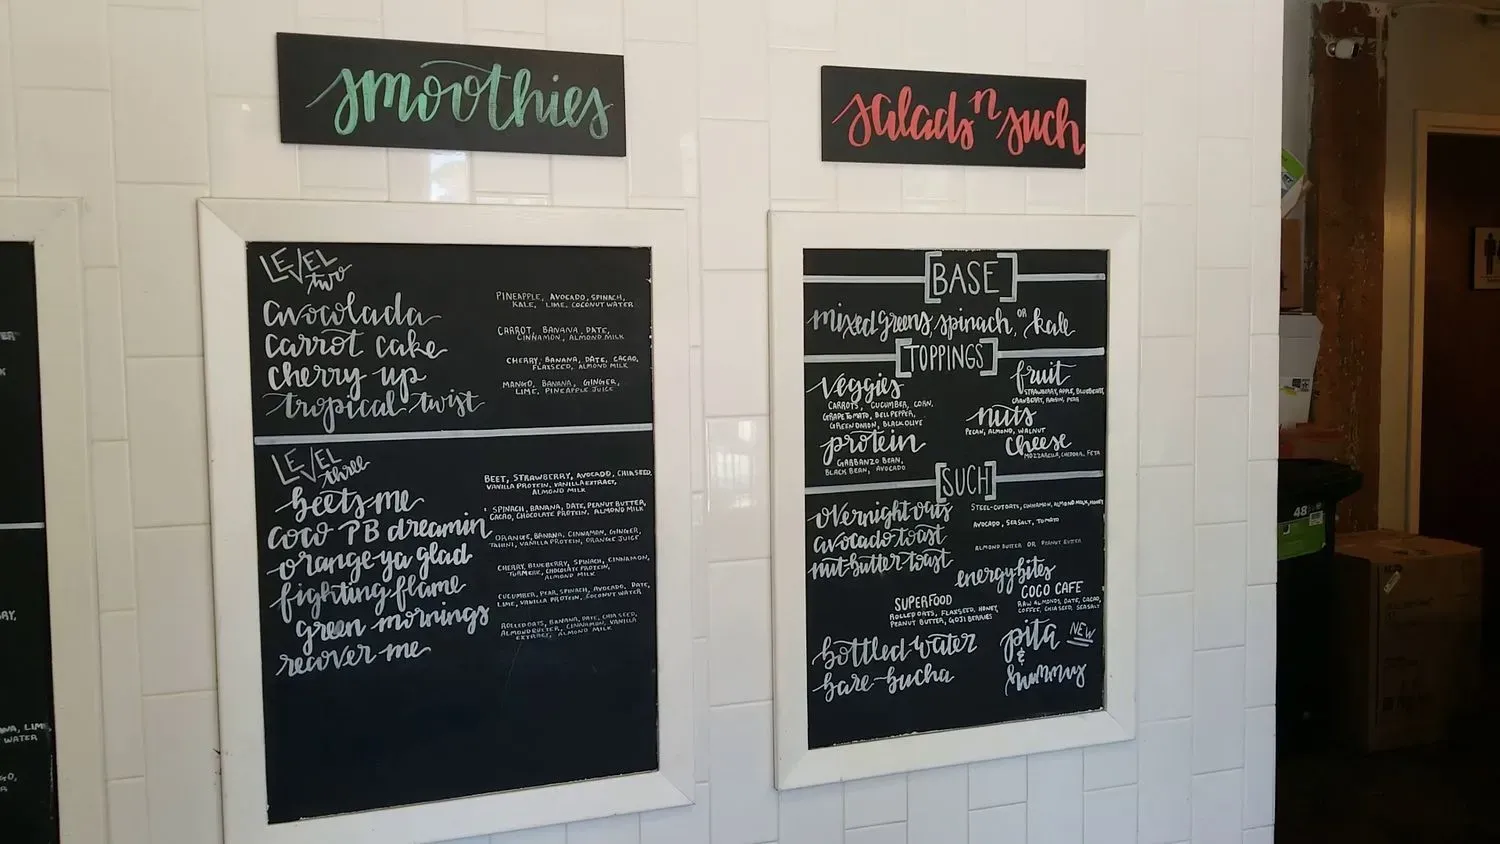 smoothies
salads n such
LEVEL two
avocolada
PINEAPPLE, AVOCADO, SPINACH,
KALE, LIME, COCONUT WATER
carrot cake
CARROT, BANANA, DATE,
CINNAMON, ALMOND MILK
cherry up
CHERRY, BANANA, DATE, CACAO,
FLAXSEED, ALMOND MILK
tropical twist
MANGO, BANANA, GINGER,
LIME, PINEAPPLE JUICE
LEVEL three
beets me
BEET, STRAWBERRY, AVOCADO, CHIA SEED,
VANILLA PROTEIN, VANILLA EXTRACT,
ALMOND MILK
coco PB dreamin'
SPINACH, BANANA, DATE, PEANUT BUTTER,
CACAO, CHOCOLATE PROTEIN, ALMOND MILK
orange-ya glad
ORANGE, BANANA, CINNAMON, GINGER,
TAHINI, VANILLA PROTEIN, ORANGE JUICE
fighting flame
CHERRY, BLUEBERRY, SPINACH, CINNAMON,
TURMERIC, CHOCOLATE PROTEIN,
ALMOND MILK
green mornings
CUCUMBER, PEAR, SPINACH, AVOCADO, DATE,
LIME, VANILLA PROTEIN, COCONUT WATER
recover-me
ROLLED OATS, BANANA, DATE, CHIA SEED,
ALMOND BUTTER, CINNAMON, VANILLA
EXTRACT, ALMOND MILK
[BASE]
mixed greens, spinach, or kale
[TOPPINGS]
veggies
CARROTS, CUCUMBER, CORN,
GRAPE TOMATO, BELL PEPPER,
GREEN ONION, BLACK OLIVE
protein
GARBANZO BEAN,
BLACK BEAN, AVOCADO
fruit
STRAWBERRY, APPLE, BLUEBERRY,
CRANBERRY, RAISIN, PEAR
nuts
PECAN, ALMOND, WALNUT
cheese
MOZZARELLA, CHEDDAR, FETA
[SUCH]
overnight oats
STEEL-CUT OATS, CINNAMON, ALMOND MILK, HONEY
avocado toast
AVOCADO, SEA SALT, TOMATO
nut-butter toast
ALMOND BUTTER OR PEANUT BUTTER
energy bites
SUPERFOOD
ROLLED OATS, FLAXSEED, HONEY,
PEANUT BUTTER, GOJI BERRIES
COCO CAFE
RAW ALMONDS, DATE, CACAO,
COFFEE, CHIA SEED, SEA SALT
bottled-water
bare-bucha
pita NEW
&
hummus
LIME
WATER
48